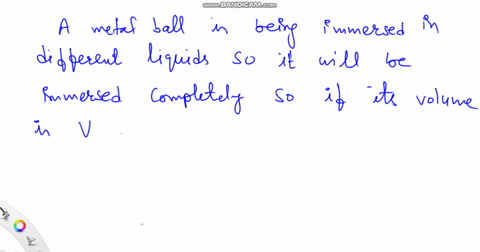 www.BANDICAM.com
A metal ball in being immersed in
different liquids so it will be
immersed completely so if its volume
in V